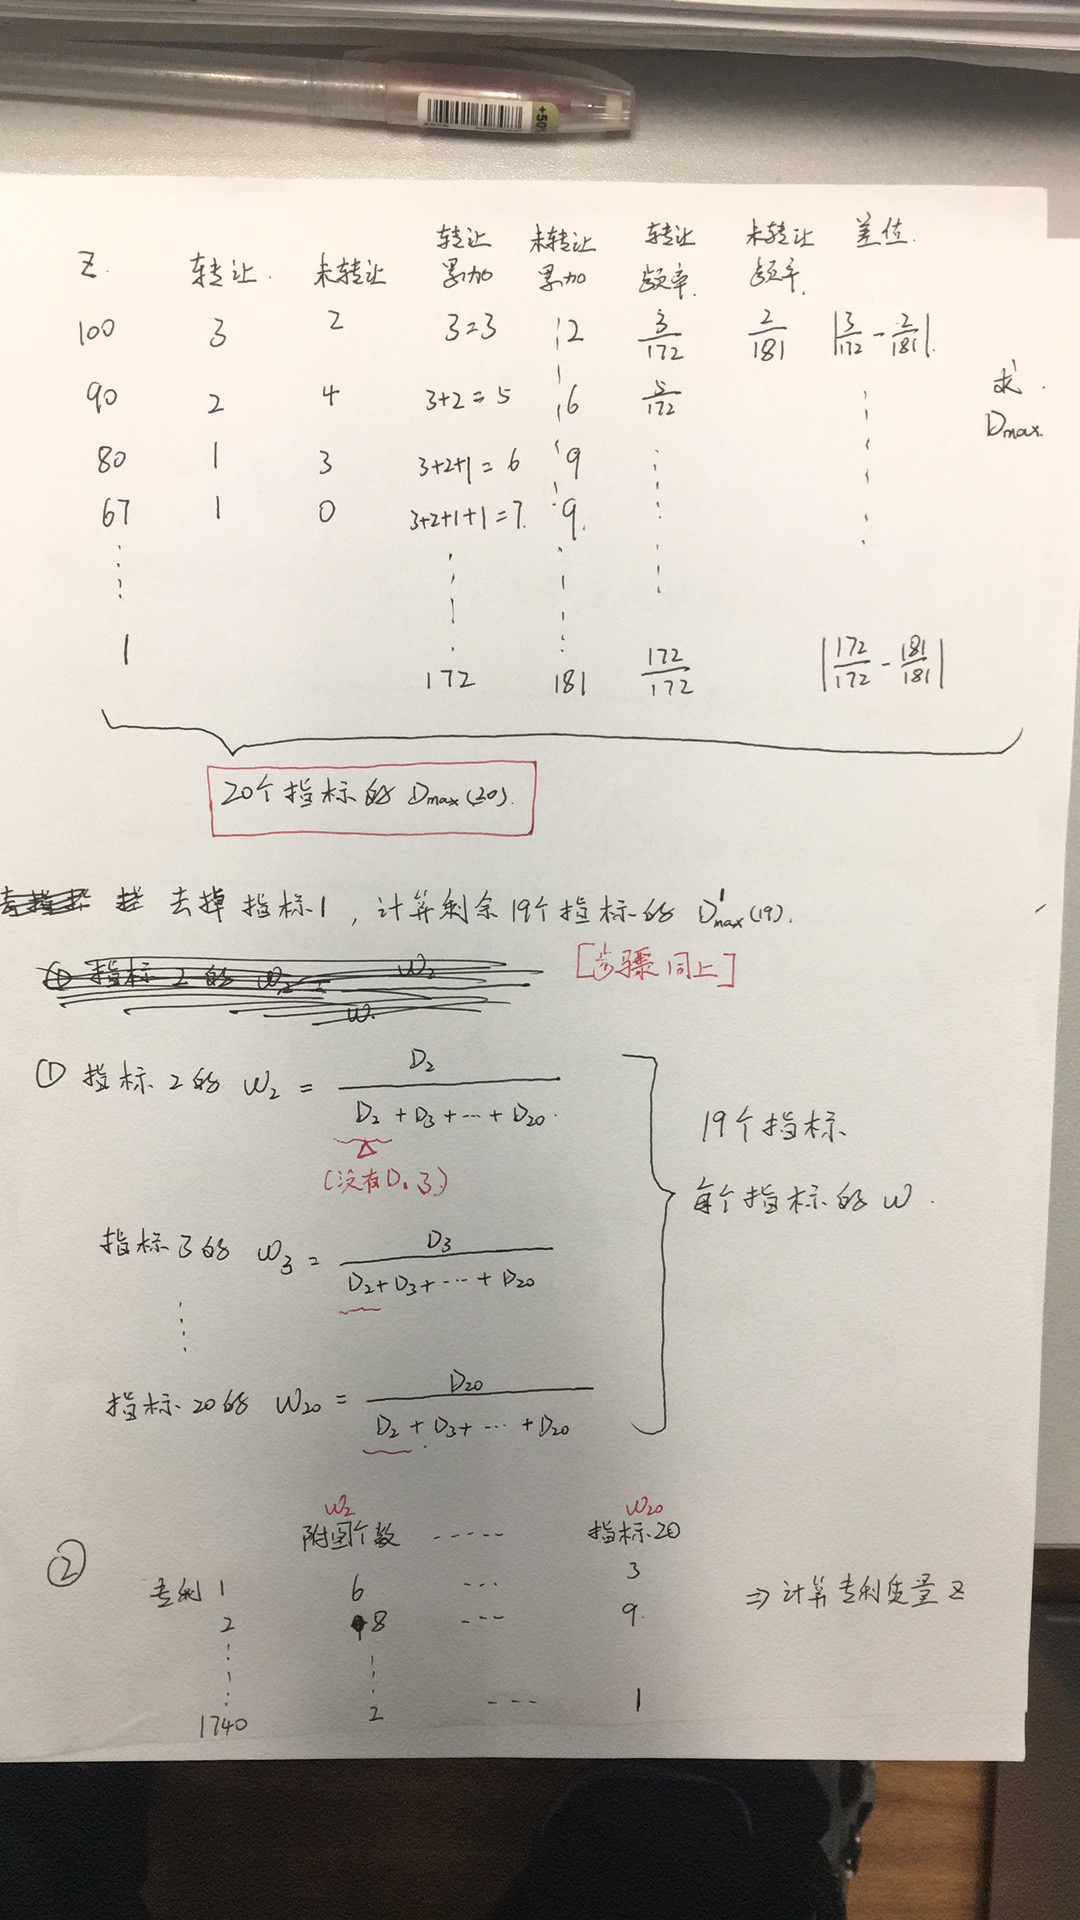 +50%
Z. 转让. 未转让 转让累加 未转让累加 转让频率. 未转让频率. 差值.
100 3 2 3=3 2 3/172 2/181 |3/172 - 2/181|.
90 2 4 3+2=5 6 5/172 求. Dmax.
80 1 3 3+2+1=6 9
67 1 0 3+2+1+1=7. 9.
1 172 181 172/172 |172/172 - 181/181|
20个指标的 Dmax(20).
去掉指标1, 计算剩余19个指标的 D¹max(19).
[步骤同上]
① 指标2的 W₂ = D₂/(D₂+D₃+…+D₂₀.)
(没有D₁了)
指标3的 W₃ = D₃/(D₂+D₃+…+D₂₀)
指标20的 W₂₀ = D₂₀/(D₂+D₃+…+D₂₀)
19个指标
每个指标的 W.
W₂ W₂₀
② 附图个数 ----- 指标20
专利1 6 --- 3
2 8 --- 9.
1740 2 --- 1
⇒计算专利质量Z